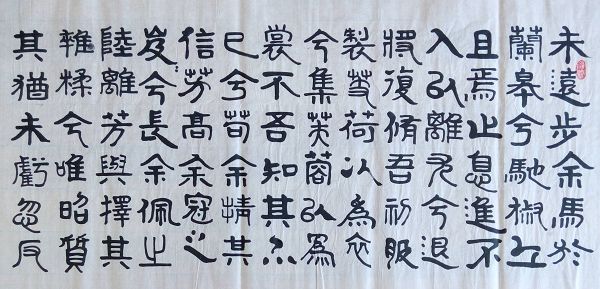 未遠步余馬於
蘭皋兮馳椒丘
且焉止息進不
入以離尤兮退
將復脩吾初服
製芰荷以為衣
兮集芙蓉以為
裳不吾知其亦
已兮苟余情其
信芳高余冠之
岌兮長余佩之
陸離芳與擇其
雜糅兮唯昭質
其猶未虧忽反